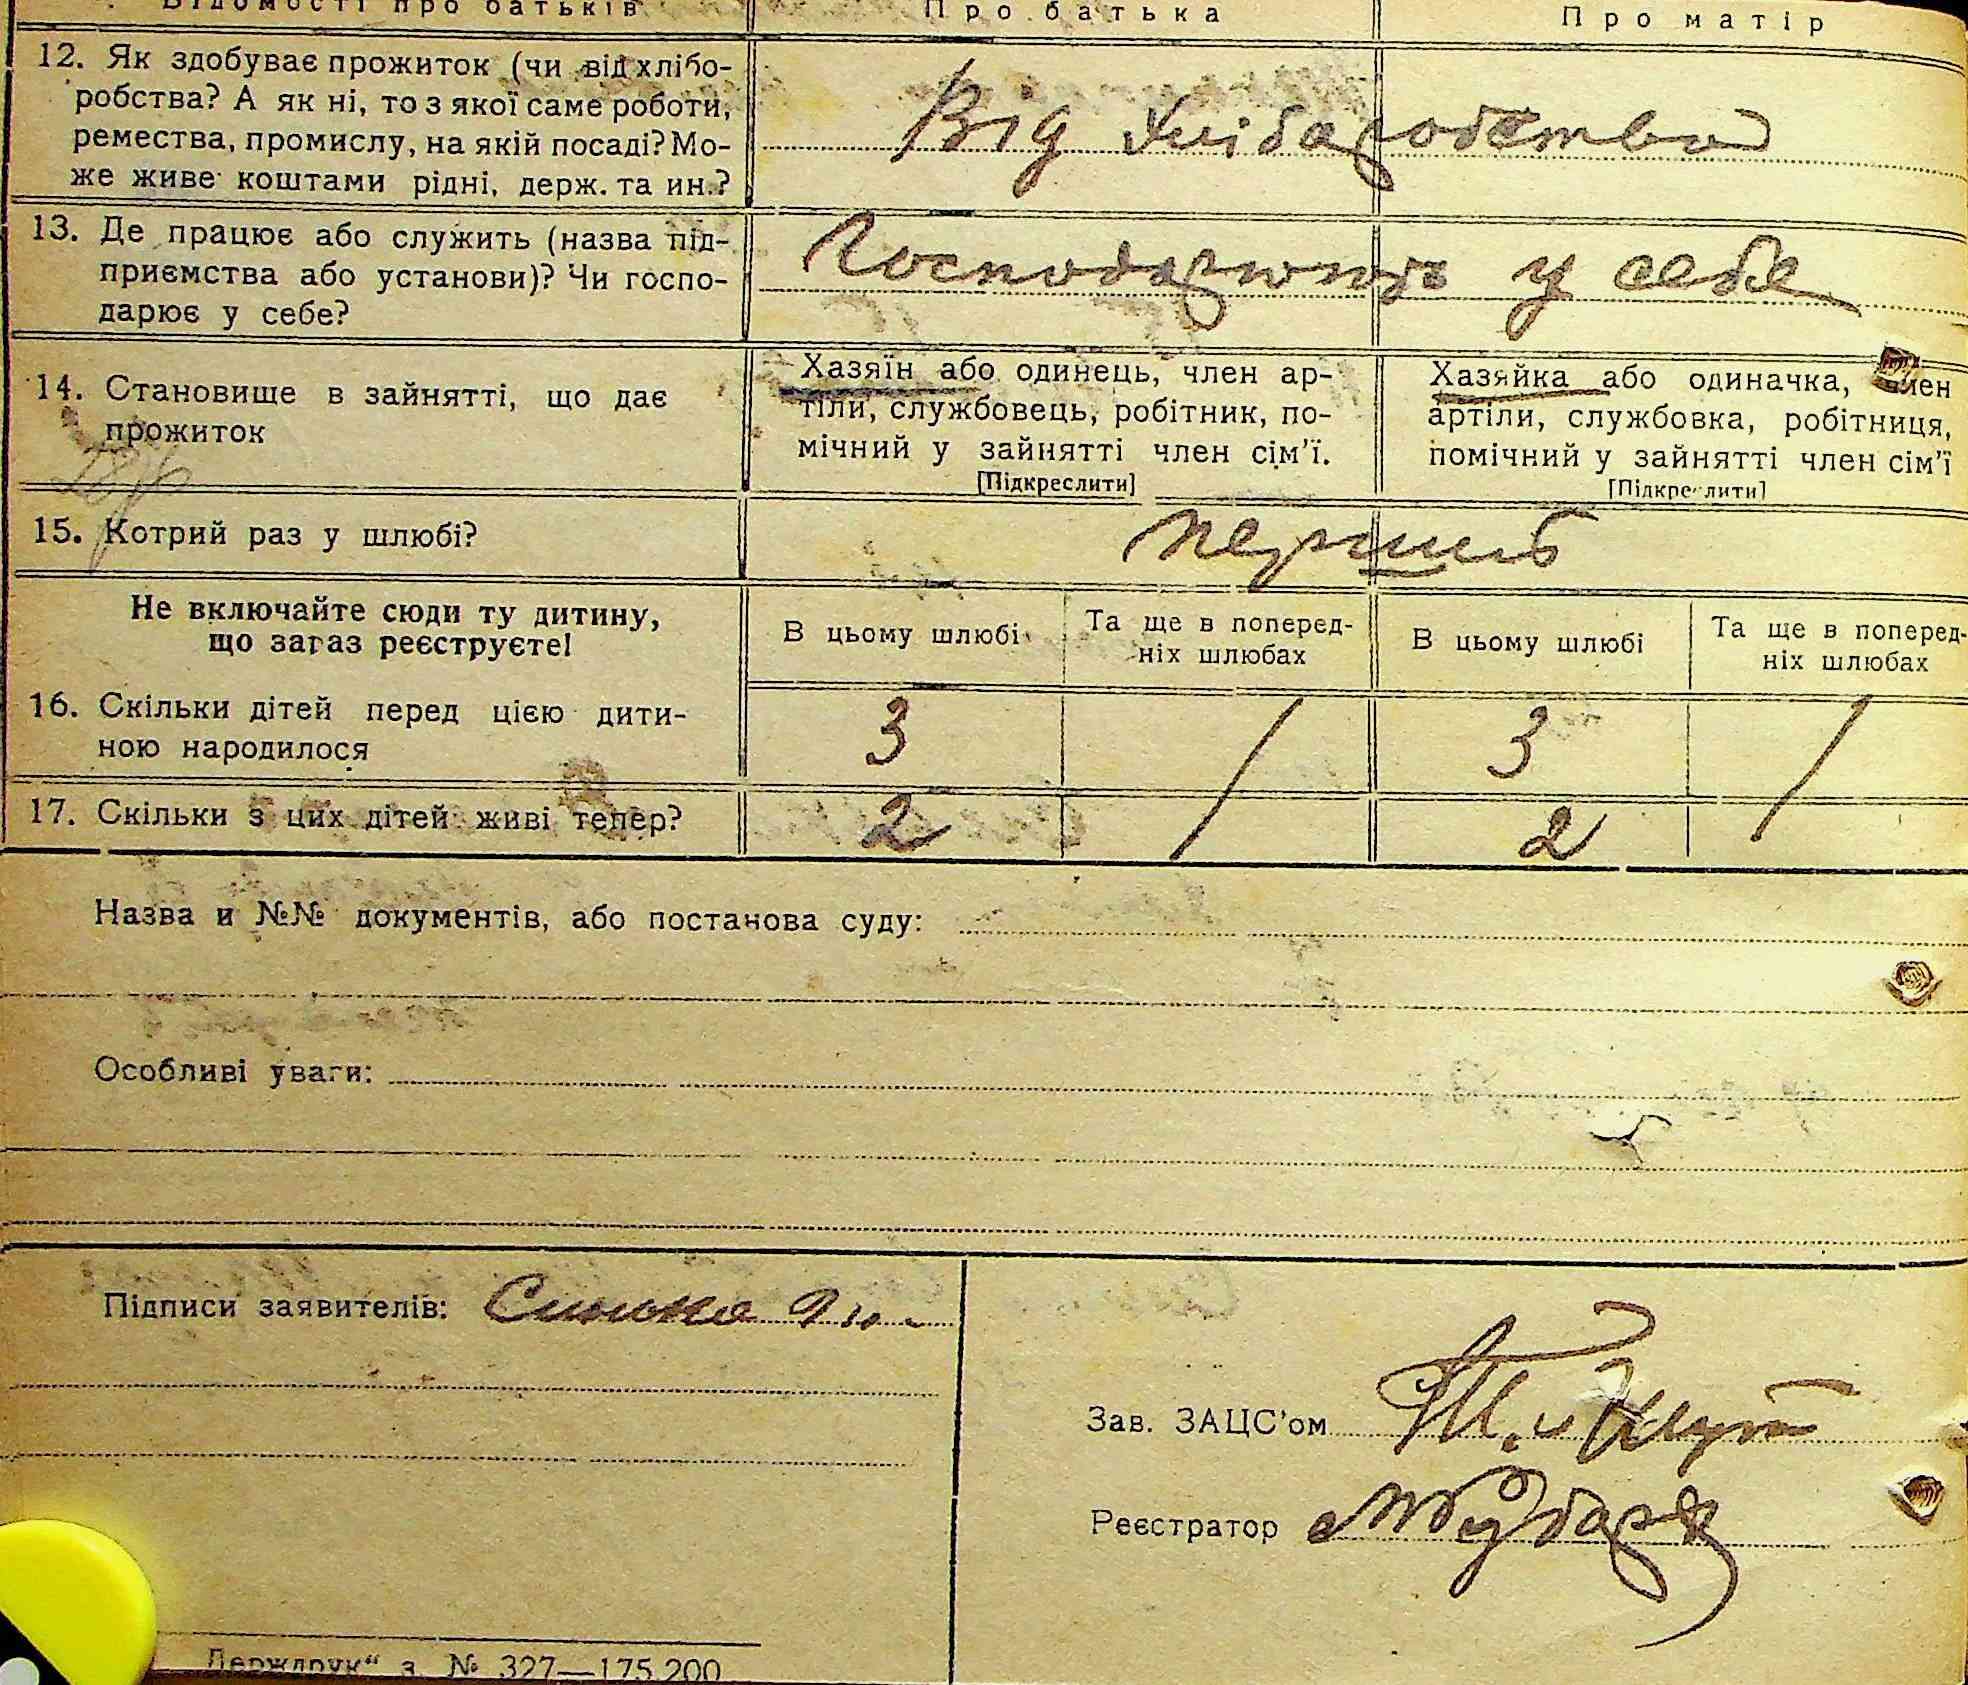 Відомості про батьків Про батька Про матір
12. Як здобуває прожиток (чи від хлібо-
робства? А як ні, то з якої саме роботи,
ремества, промислу, на якій посаді? Мо-
же живе коштами рідні, держ. та ин.?
Від хліборобства
13. Де працює або служить (назва під-
приємства або установи)? Чи госпо-
дарює у себе?
Господарюють у себе
14. Становище в зайнятті, що дає
прожиток
Хазяїн або одинець, член ар-
тіли, службовець, робітник, по-
мічний у зайнятті член сім'ї.
[Підкреслити]
Хазяйка або одиначка, член
артіли, службовка, робітниця,
помічний у зайнятті член сім'ї
[Підкреслити]
15. Котрий раз у шлюбі?
Не включайте сюди ту дитину,
що загаз реєструєте!
В цьому шлюбі
Та ще в поперед-
ніх шлюбах
В цьому шлюбі
Та ще в поперед-
ніх шлюбах
16. Скільки дітей перед цією дити-
ною народилося
3 / 3 /
17. Скільки з цих дітей живі тепер?
2 2
Назва и №№ документів, або постанова суду:
Особливі уваги:
Підписи заявителів:
Зав. ЗАЦС'ом
Реєстратор
Держдрук“ з. № 327—175.200